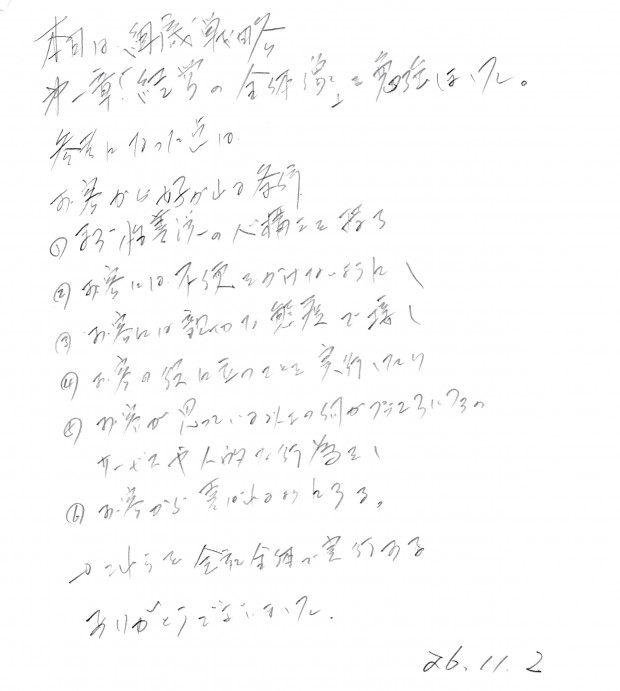 本日は、組織戦略
第一章「経営の全体像」を勉強しました。
参考になった点は
お客から好かれる条件
① 第一の心構えを持つ
② お客には不便をかけないようにし
③ お客には親切な態度で接し
④ お客の役に立つことを実行したり
⑤ お客が思っている以上の何かプラスの
サービスや人的な行為をし
⑥ お客から喜ばれるようにする。
→これらを会社全体で実行する
ありがとうございました。
26.11.2